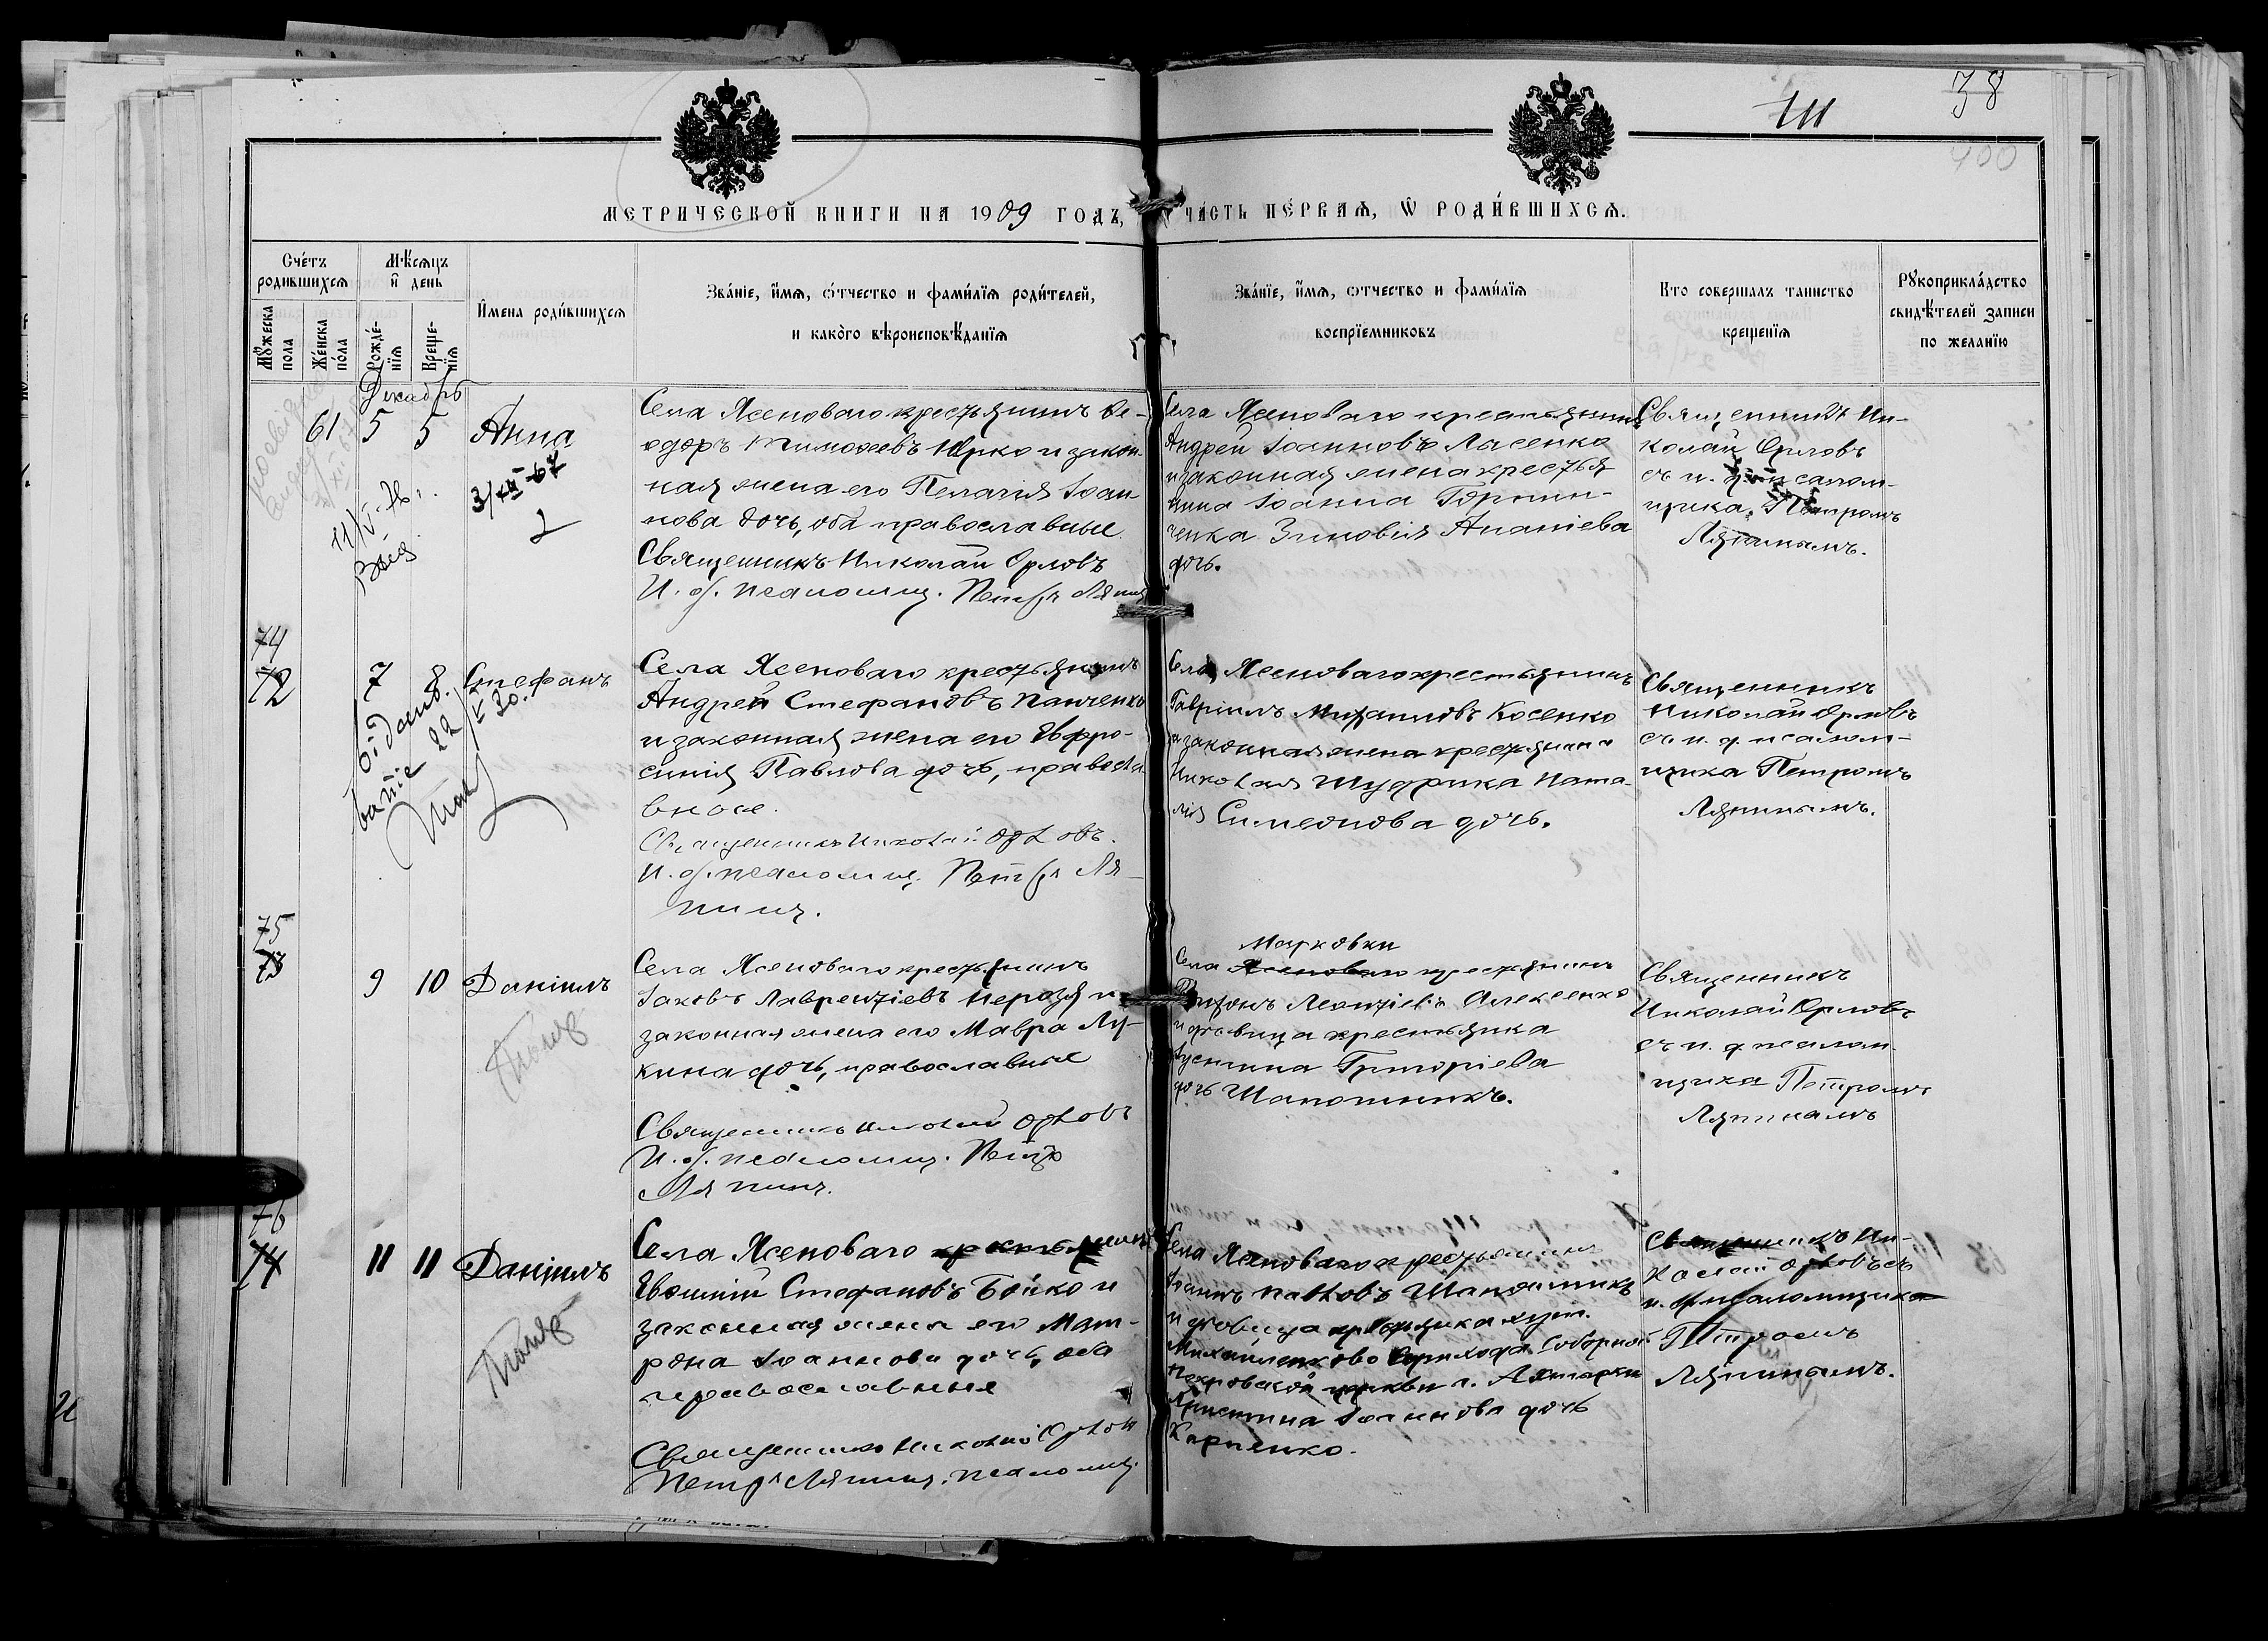 111
38
400
МЕТРИЧЕСКОЙ КНИГИ НА 1909 ГОДЪ, ЧА́СТЬ ПЕ́РВАѦ, Ѡ РОДИ́ВШИХСѦ.
Сче́тъ родившихсѧ
Мꙋ́жеска пола
Же́нска по́ла
Мѣ́сѧцъ и҆ день
Рожде́-нїѧ
Креще-нїѧ
И҆мена роди́вшихсѧ
Зва́нїе, и҆́мѧ, ѻ҆́тчество и фами́лїѧ роди́телей,
и како́го вѣроисповѣ́данїѧ
Зва́нїе, и҆́мѧ, ѻ҆тчество и фами́лїѧ
воспрїемниковъ
Кто совершалъ таинство
крещенїѧ
Рꙋкоприкла́дство
свидѣ́телей записи
по желанїю
Декабрь
61 5 5 Анна
3/XII-67
Села Ясеноваго крестьянинъ Ѳе-
одоръ Тимоѳеевъ Юрко и закон-
ная жена его Пелагія Іоан-
нова дочь, оба православные.
Священникъ Николай Орловъ
И. об. псаломщ. Петръ Ляпинъ
Села Ясеноваго крестьянинъ
Андрей Іоанновъ Лысенко
и законная жена крестья
нина Іоанна
Зиновія Ананіева
дочь.
Священникъ Ни-
колай Орловъ
съ и. д. псалом-
щика Петромъ
Ляпинымъ.
74
72 7 8 Стефанъ
22/V 30.
Села Ясеноваго крестьянинъ
Андрей Стефановъ Панченко
и законная жена его Евфро-
синія Павлова дочь, правосла
вные.
Священникъ Николай Орловъ.
И. об. псаломщ. Петръ Ля-
пинъ.
Села Ясеноваго крестьянинъ
Гавріилъ Михаиловъ Косенко
и законная жена крестьянина
Николая Шудрика Ната-
лія Симеонова дочь.
Священникъ
Николай Орловъ
съ и. д. псалом-
щика Петромъ
Ляпинымъ.
75
73 9 10 Даніилъ
Села Ясеноваго крестьянинъ
Іаковъ Лаврентіевъ Перозя и
законная жена его Мавра Лу-
кина дочь, православные
Священникъ Николай Орловъ
И. об. псаломщ. Петръ
Ляпинъ.
Марковки
Села Ясеноваго крестьянинъ
Леонтіевъ Алексеенко
и дѣвица крестьянка
Григоріева
дочь Шапошникъ.
Священникъ
Николай Орловъ
съ и. д. псалом-
щика Петромъ
Ляпинымъ
76
74 11 11 Даніилъ
Села Ясеноваго крестьянинъ
Евѳимій Стефановъ Бойко и
законная жена его Мат-
рона Іоаннова дочь, оба
православныя
Священникъ Николай Орловъ
Петръ Ляпинъ. псаломщ.
Села Ясеноваго крестьянинъ
Іоаннъ Павловъ Шапошникъ
и дѣвица крестьянка хут.
Михайленково прихода Соборной
Покровской церкви г. Ахтырки
Христина Іоаннова дочь
Карпенко.
Священникъ Ни-
колай Орловъ съ
и. д. псаломщика
Петромъ
Ляпинымъ.